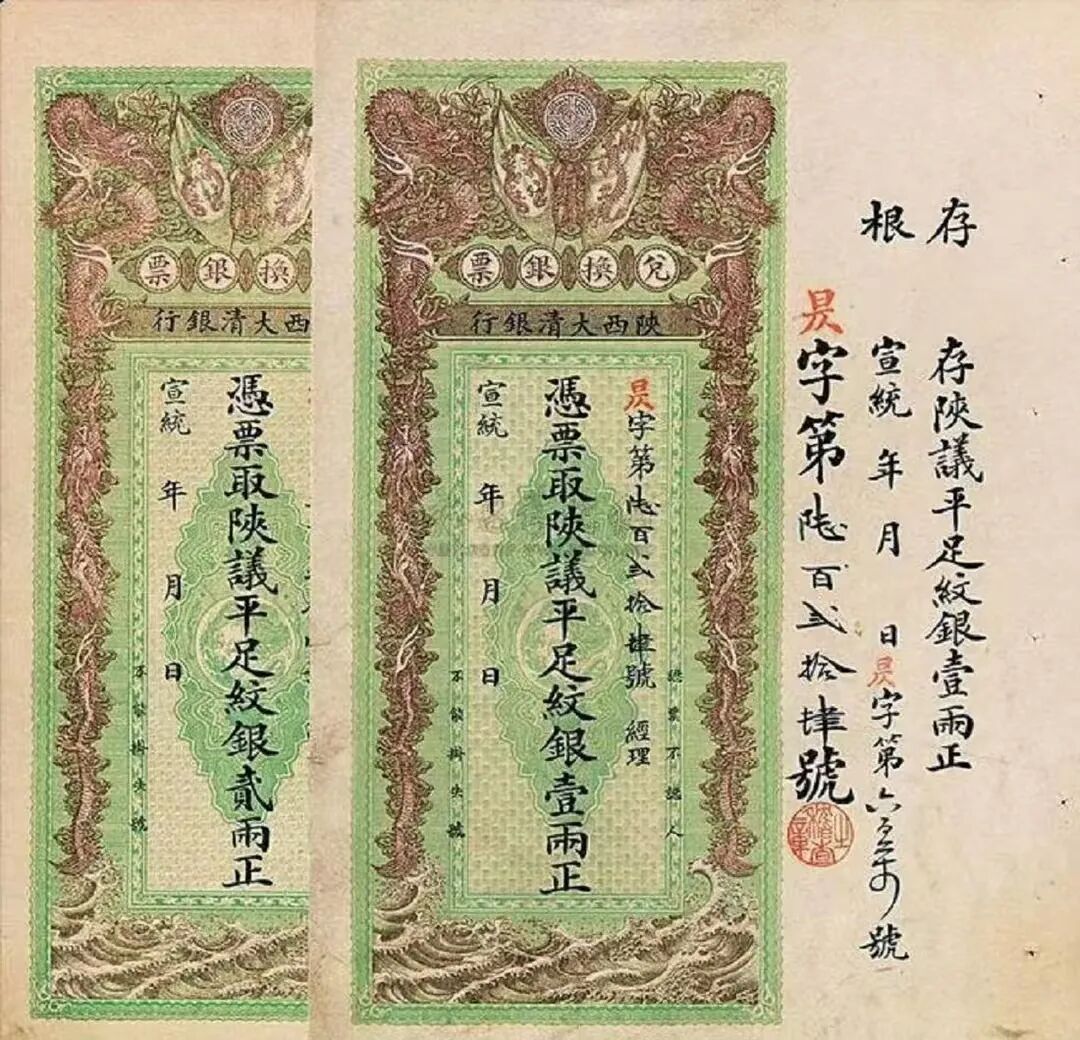 存根
存陝議平足紋銀壹兩正
宣統 年 月 日 昃字第六 號
昃字第陸百弍拾肆號
兌換銀票
陝西大清銀行
認票不認人
昃字第陸百弍拾肆號 經理
憑票取陝議平足紋銀壹兩正
宣統 年 月 日
不能掛失號
換銀票
西大清銀行
憑票取陝議平足紋銀貳兩正
宣統 年 月 日
不能掛失號